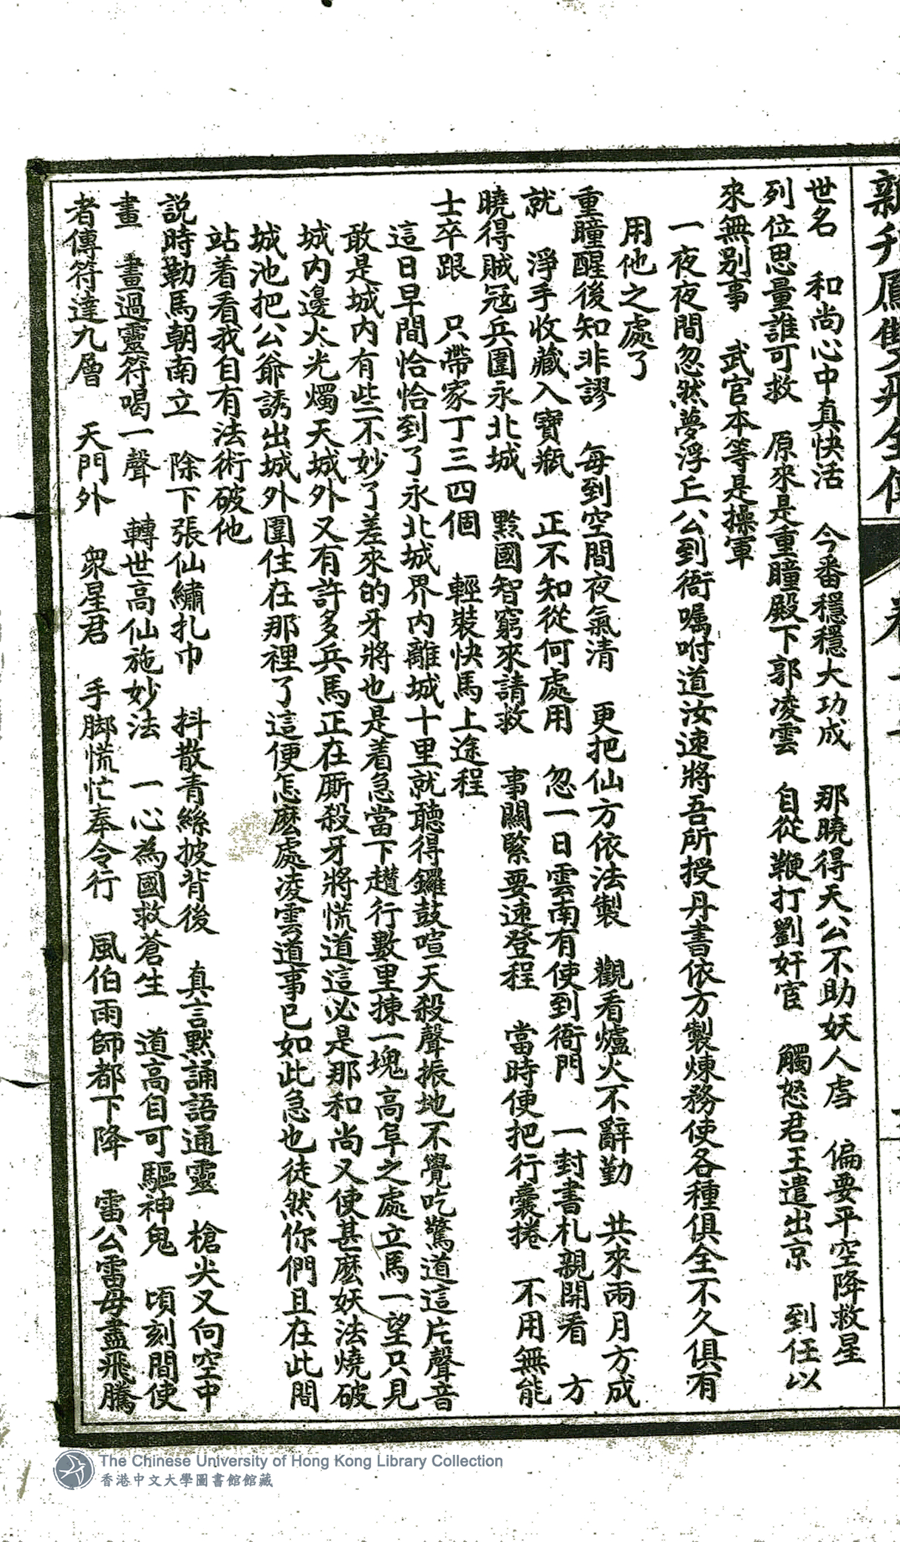 新刊鳳雙飛全傳
世名　和尚心中真快活　今番穩穩大功成　那曉得天公不助妖人虐　偏要平空降救星
列位思量誰可救　原來是重瞳殿下郭凌雲　自從鞭打劉奸宦　觸怒君王遣出京　到任以
來無別事　武官本等是操軍
一夜夜間忽然夢浮丘公到衙囑咐道汝速將吾所授丹書依方製煉務使各種俱全不久俱有
用他之處了
重瞳醒後知非謬　每到空間夜氣清　更把仙方依法製　觀看爐火不辭勤　共來兩月方成
就　淨手收藏入寶瓶　正不知從何處用　忽一日雲南有使到衙門　一封書札親開看　方
曉得賊冦兵圍永北城　黔國智窮來請救　事關緊要速登程　當時便把行囊捲　不用無能
士卒跟　只帶家丁三四個　輕裝快馬上途程
這日早間恰恰到了永北城界內離城十里就聽得鑼鼓喧天殺聲振地不覺吃驚道這片聲音
敢是城內有些不妙了差來的牙將也是着急當下趲行數里揀一塊高阜之處立馬一望只見
城內邊火光燭天城外又有許多兵馬正在厮殺牙將慌道這必是那和尚又使甚麽妖法燒破
城池把公爺誘出城外圍住在那裡了這便怎麽處凌雲道事已如此急也徒然你們且在此間
站着看我自有法術破他
說時勒馬朝南立　除下張仙繡扎巾　抖散青絲披背後　真言默誦語通靈　槍尖又向空中
畫　畫過靈符喝一聲　轉世高仙施妙法　一心為國救蒼生　道高自可驅神鬼　頃刻間使
者傳符達九層　天門外　衆星君　手脚慌忙奉令行　風伯雨師都下降　雷公雷母盡飛騰
The Chinese University of Hong Kong Library Collection
香港中文大學圖書館館藏